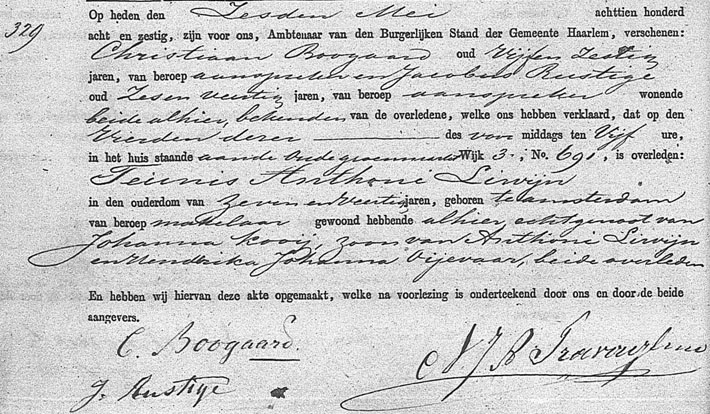 329
Op heden den Zesden Mei achttien honderd
acht en zestig, zijn voor ons, Ambtenaar van den Burgerlijken Stand der Gemeente Haarlem, verschenen:
Christiaan Boogaard oud Vijf en Zestig
jaren, van beroep aanspreker en Jacobus Rustige
oud Zes en veertig jaren, van beroep aanspreker wonende
beide alhier, bekenden van de overledene, welke ons hebben verklaard, dat op den
Vierden dezer des voor middags ten Vijf ure,
in het huis staande aan de Oude groenmarkt Wijk 3, No. 691, is overleden:
Teunis Anthoni Liwijn
in den ouderdom van Zeven en Veertig jaren, geboren te Amsterdam
van beroep makelaar gewoond hebbende alhier, echtgenoot van
Johanna Kooij, zoon van Anthoni Liwijn
en Hendrika Johanna Vijevaar, beide overleden
En hebben wij hiervan deze akte opgemaakt, welke na voorlezing is onderteekend door ons en door de beide
aangevers.
C. Boogaard.
J. Rustige